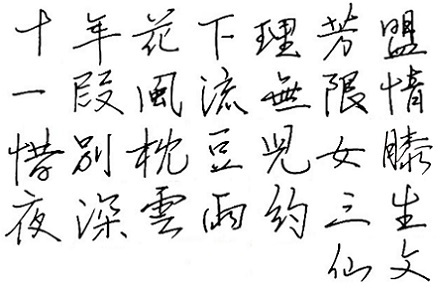 十年花下理芳盟
一段風流無限情
惜別枕豆兒女膝
夜深雲雨約三生
仙文